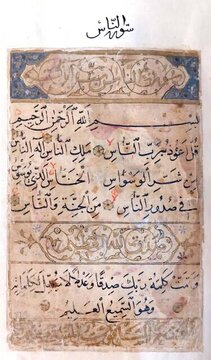 سورة الناس
بِسْمِ اللهِ الرَّحْمٰنِ الرَّحِيمِ
قُلْ أَعُوذُ بِرَبِّ النَّاسِ مَلِكِ النَّاسِ إِلٰهِ النَّاسِ
مِنْ شَرِّ الْوَسْوَاسِ الْخَنَّاسِ الَّذِي يُوَسْوِسُ
فِي صُدُورِ النَّاسِ مِنَ الْجِنَّةِ وَالنَّاسِ
وَتَمَّتْ كَلِمَةُ رَبِّكَ صِدْقًا وَعَدْلًا لَا مُبَدِّلَ لِكَلِمَاتِهِ
وَهُوَ السَّمِيعُ الْعَلِيمُ